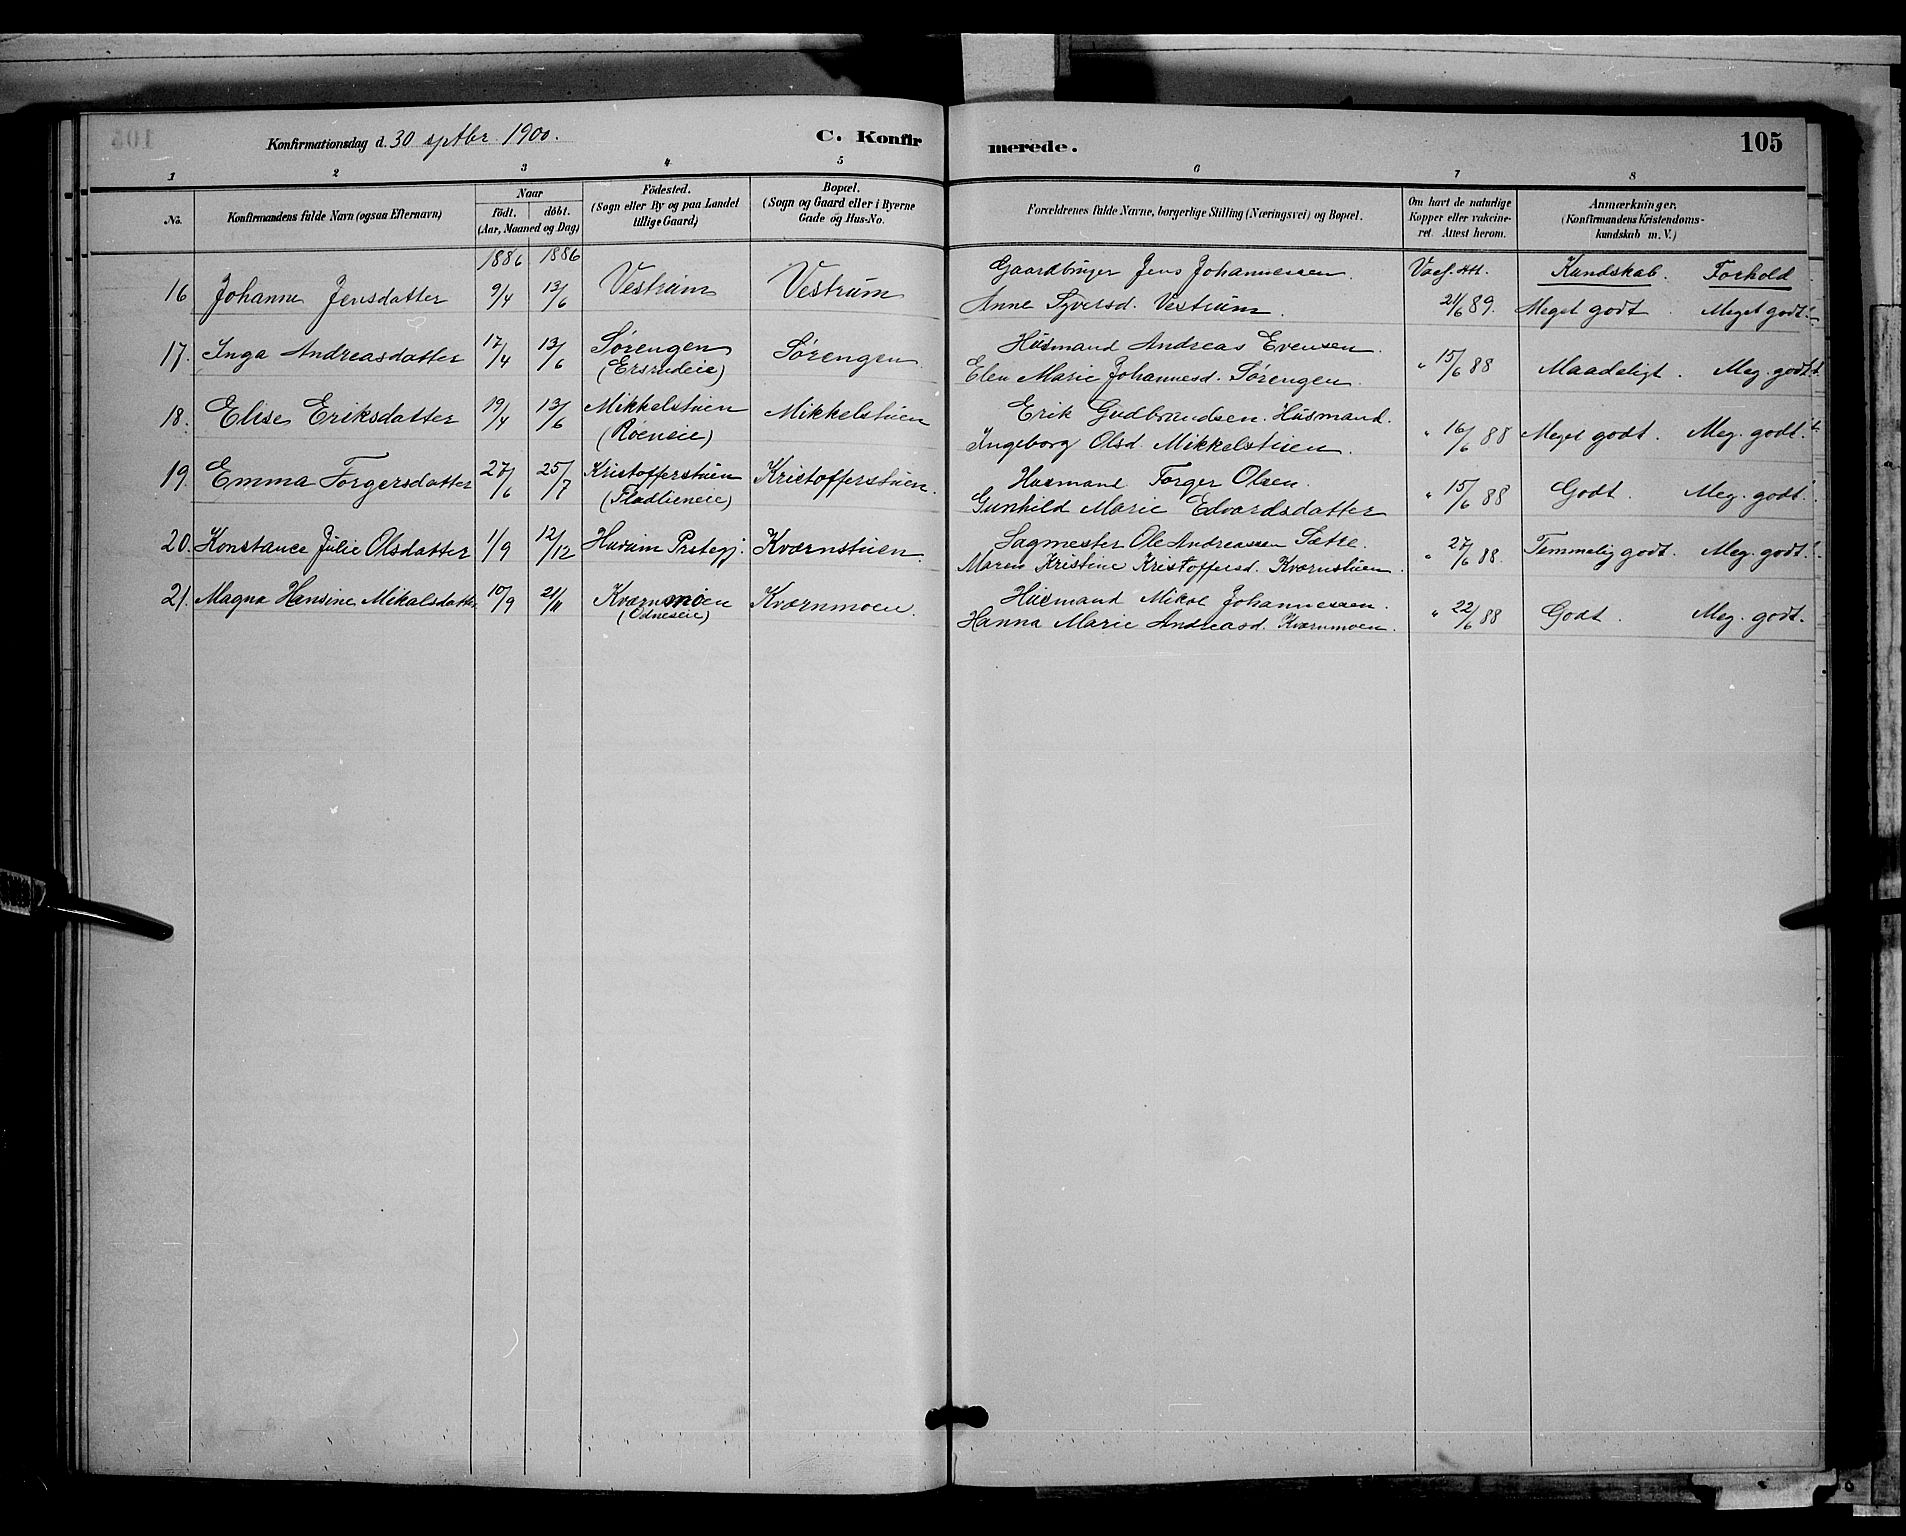 Konfirmationsdag d. 30 sptbr 1900.
C. Konfirmerede.
105
1 2 3 4 5 6 7 8
No.
Konfirmandens fulde Navn (ogsaa Efternavn)
Naar
födt. döbt.
(Aar, Maaned og Dag)
Födested.
(Sogn eller By og paa Landet
tillige Gaard)
Bopæl.
(Sogn og Gaard eller i Byerne
Gade og Hus-No.
Forældrenes fulde Navne, borgerlige Stilling (Næringsvei) og Bopæl.
Om havt de naturlige
Kopper eller vakcine-
ret. Attest herom.
Anmærkninger.
(Konfirmandens Kristendoms-
kundskab m. V.)
1886 1886
Gaardbruger Jens Johannessen. Vacc. att. Kundskab. Forhold
16 Johanne Jensdatter 9/4 13/6 Vestrum Vestrum Anne Syversd. Vestrum. 21/6 89. Meget godt. Meget godt.
17. Inga Andreasdatter 17/4 13/6 Sørengen Sørengen Husmand Andreas Evensen.
(Ersrudeie) Elen Marie Johannesd. Sørengen. " 15/6 88 Maadeligt. Meg. godt.
18. Elise Eriksdatter 19/4 13/6 Mikkelstuen Mikkelstuen Erik Gudbrandsen. Husmand.
(Røeneie) Ingeborg Olsd. Mikkelstuen. " 16/6 88 Meget godt. Meg. godt.
19. Emma Torgersdatter 27/6 25/7 Kristofferstuen Kristofferstuen. Husmand Torger Olsen.
(Fladlieneie) Gunhild Marie Edvardsdatter " 15/6 88 Godt. Meg. godt.
20. Konstance Julie Olsdatter 1/9 12/12 Hurum Prstegj. Kværnstuen. Sagmester Ole Andreassen Sætre.
Maren Kristine Kristoffersd. Kværnstuen. " 27/6 88. Temmelig godt. Meg. godt.
21. Magna Hansine Mikalsdatter 10/9 21/11 Kværnmoen Kværnmoen. Husmand Mikal Johannessen.
(Odneseie) Hanna Marie Andreasd. Kværnmoen. " 22/6 88 Godt. Meg. godt.